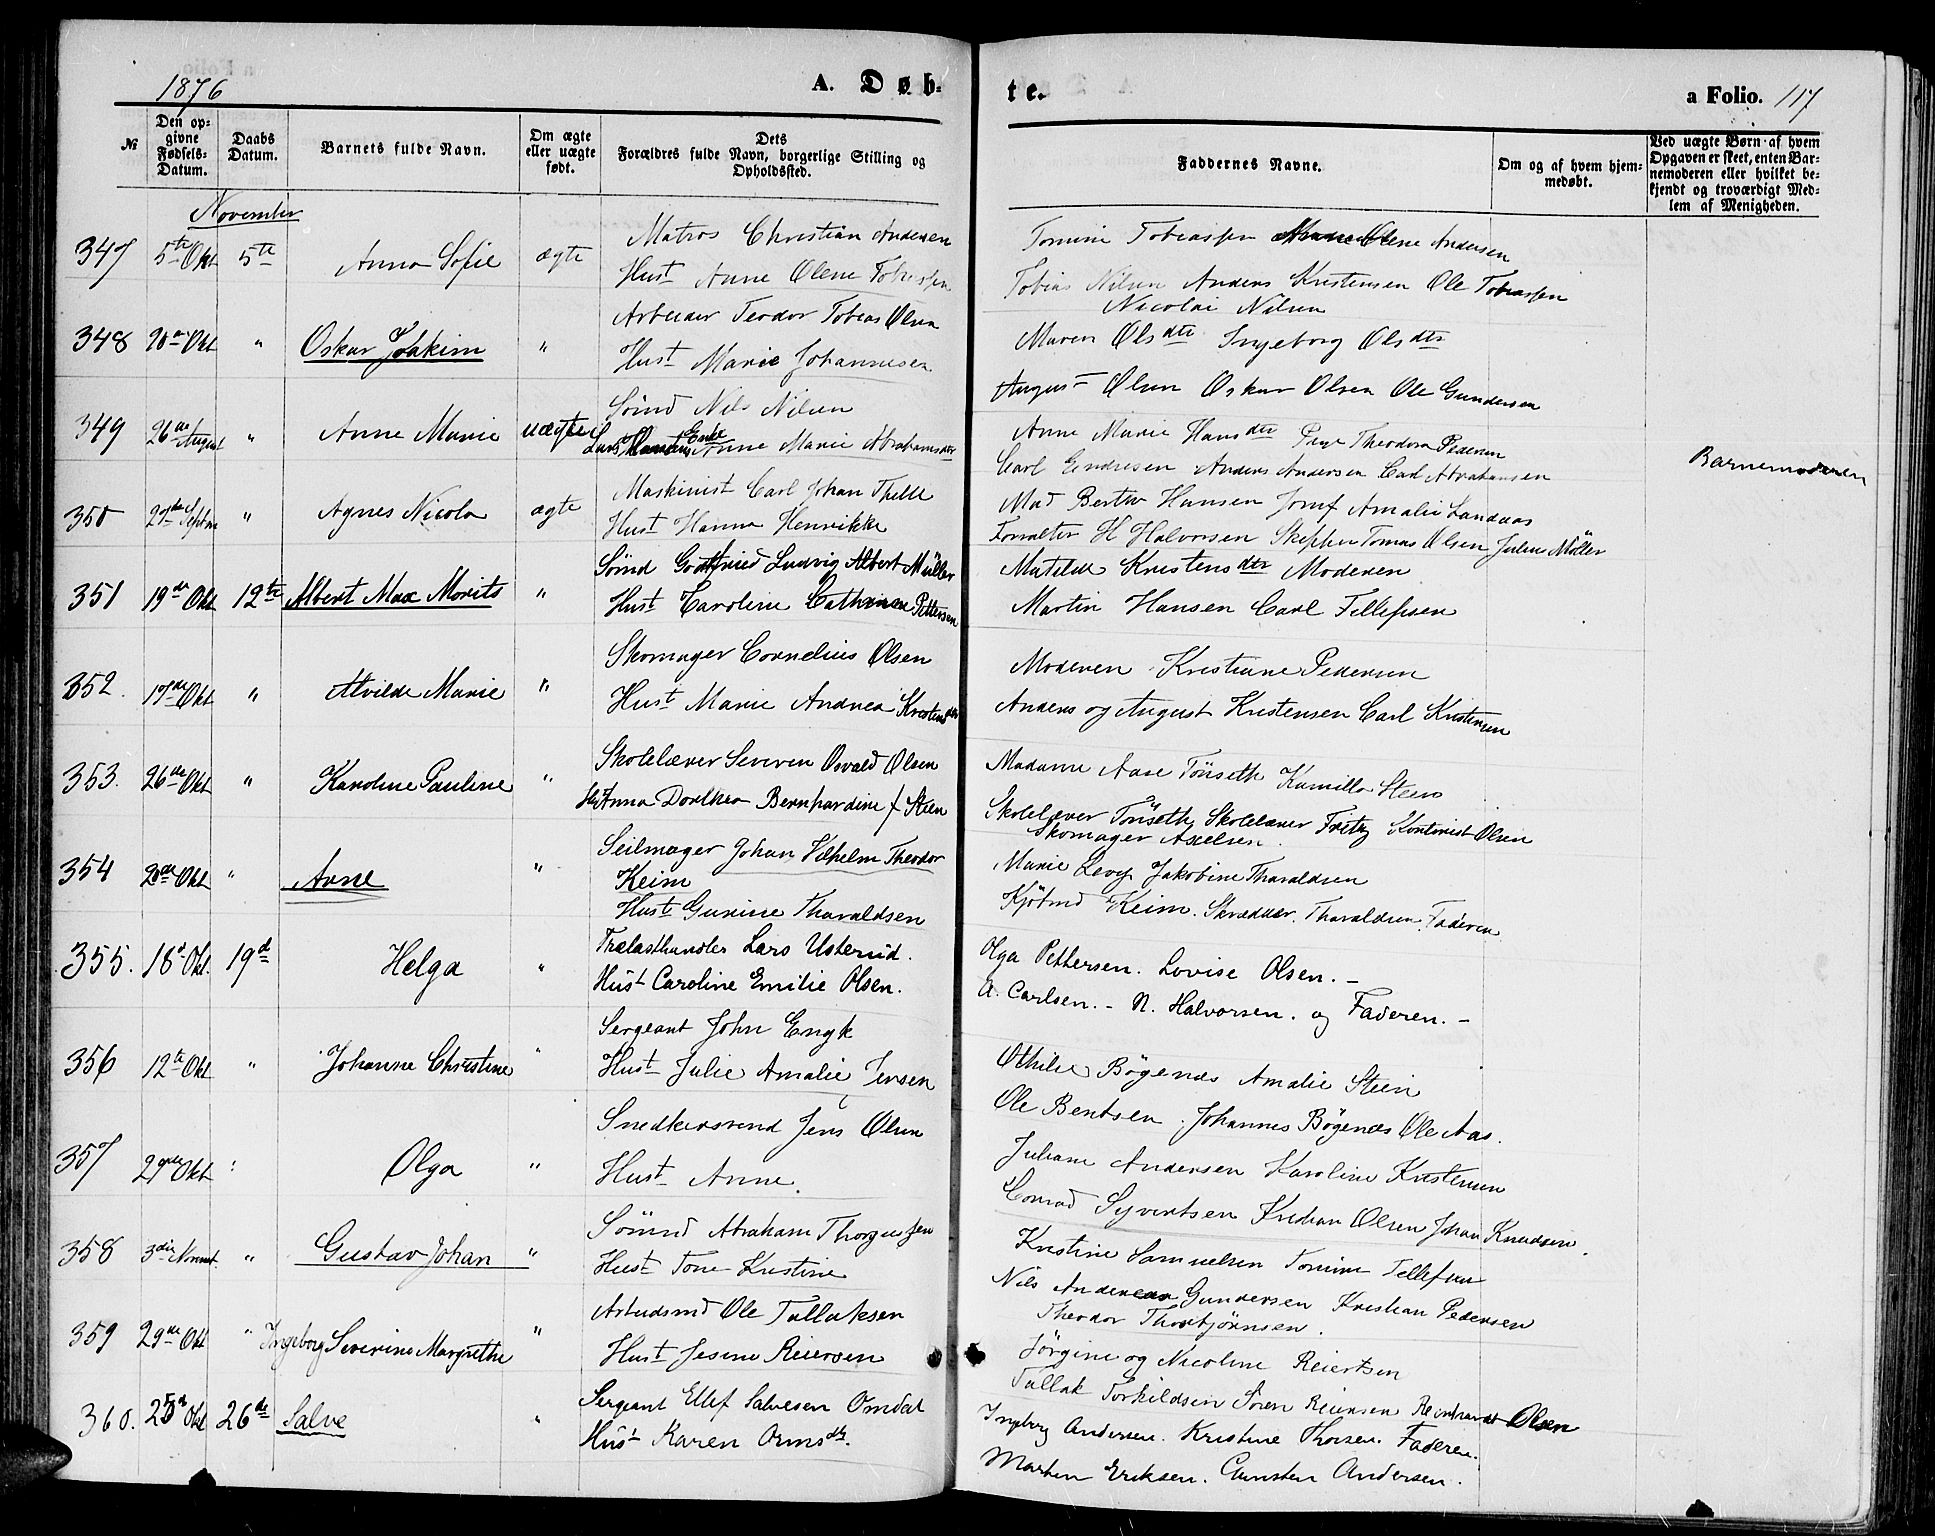 1876 A. Døb-
№
Den op-
givne
Fødsels-
Datum.
Daabs
Datum.
Barnets fulde Navn.
Om ægte
eller uægte
født.
Dets
Forældres fulde Navn, borgerlige Stilling og
Opholdssted.
November
347 5te Okt 5te Anna Sofie ægte Matros Christian Andersen
Hust Anne Olene Tobiassen
348 20de Okt " Oskar Joakim " Arbeider Teodor Tobias Olsen
Hust Marie Johannesen
349 26de August " Anne Marie uægte Sømd Nils Nilsen
Lars Hansens Enke Anne Marie Abrahamsdtr
350 27de Septbr " Agnes Nicola ægte Maskinist Carl Johan Thelle
Hust Hanna Henrikke
351 19de Okt 12te Albert Max Morits " Sømd Gottfried Ludvig Albert Müller
Hust Caroline Cathrine Pettersen
352. 17de Okt " Alvilde Marie " Skomager Cornelius Olsen
Hust Marie Andrea Kristensdtr
353. 26de Okt " Karoline Pauline " Skolelærer Severin Osvald Olsen
Hst Anna Dorthea Bernhardine f Steen
354 20de Okt " Arne " Seilmager Johan Vilhelm Theodor
Keim
Hust Gurine Tharaldsen
355. 18d Okt. 19d Helga " Trælasthandler Lars Usterud.
Hust Caroline Emilie Olsen.
356 12te Okt " Johanne Christine " Sergeant John Engk
Hust Julie Amalie Jensen
357 29de Okt " Olga " Snedkersvend Jens Olsen
Hust Anne.
358 3die Novemb. " Gustav Johan " Sømd Abraham Thorgusen
Hust Tone Kristine
359 29de Okt " Ingeborg Severine Margrethe " Arbeidsmd Ole Tallaksen
Hust Jesine Reiersen
360. 25de Okt 26de Salve " Sergeant Ellef Salvesen Omdal
Hust Karen Ormsdtr.
te. a Folio. 117
Faddernes Navne.
Om og af hvem hjem-
medøbt.
Ved uægte Børn af hvem
Opgaven er skeet, enten Bar-
nemoderen eller hvilket be-
kjendt og troværdigt Med-
lem af Menigheden.
Tomine Tobiassen Olene Andersen
Tobias Nilsen Anders Kristensen Ole Tobiassen
Nicolai Nilsen
Maren Olsdtr Ingeborg Olsdtr
August Olsen Oskar Olsen Ole Gundersen
Anne Marie Hansdtr Pige Theodora Pedersen
Carl Endresen Anders Andersen Carl Abrahamsen Barnemoderen
Mad Berthe Hansen Jomf Amalie Landaas
Forvalter H Halvorsen Skipper Tomas Olsen Julius Møller
Matilde Kristensdtr Moderen
Martin Hansen Carl Tellefsen
Moderen Kristiane Pedersen
Anders og August Kristensen Carl Kristensen
Madame Aase Tönseth Kamilla Steen
Skolelærer Tönseth Skolelærer Fritz Kontorist Olsen
Skomager Axelsen.
Marie Levy Jakobine Tharaldsen
Kjöbmd Keim. Skrædder. Tharaldsen. Faderen
Olga Pettersen. Lovise Olsen. -
A. Carlsen. - N. Halvorsen. og Faderen. -
Othilie Bøgenæs Amalie Steen
Ole Bentsen. Johannes Bøgenæs Ole Aas.
Juliane Andersen Karoline Kristensen
Conrad Syvertsen Kristian Olsen Johan Knudsen.
Kristine Samuelsen Tomine Tellefsen
Nils Andersen Gundersen Kristian Pedersen
Theodor Thorbjørnsen.
Jörgine og Nicoline Reiertsen
Tallak Torkildsen Sören Reiersen Reinhardt Olsen
Ingeborg Andersen. Kristine Thorsen. Faderen.
Morten Eriksen. Gunsten Andersen.